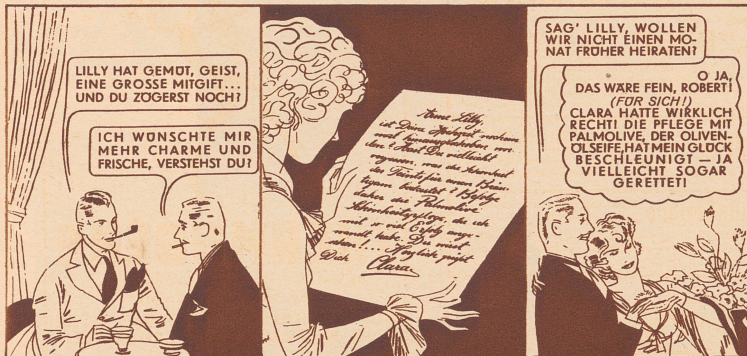 LILLY HAT GEMÜT, GEIST,
EINE GROSSE MITGIFT...
UND DU ZÖGERST NOCH?
ICH WÜNSCHTE MIR
MEHR CHARME UND
FRISCHE, VERSTEHST DU?
Arme Lilly,
ist Dein Hochzeit nochmal
den? Hast Du vielleicht
vergessen, was die Schönheit
des Teints für einen Bräu-
tigam bedeutet? Befolge
eben die Palmolive-
Schönheitspflege, die ich
mit so viel Erfolg ange-
wandt habe. Du wirst
sehen!... Herzlich grüßt
Dich
Clara
SAG' LILLY, WOLLEN
WIR NICHT EINEN MO-
NAT FRÜHER HEIRATEN?
O JA,
DAS WÄRE FEIN, ROBERT!
(FÜR SICH!)
CLARA HATTE WIRKLICH
RECHT! DIE PFLEGE MIT
PALMOLIVE, DER OLIVEN-
ÖLSEIFE, HAT MEIN GLÜCK
BESCHLEUNIGT — JA
VIELLEICHT SOGAR
GERETTET!